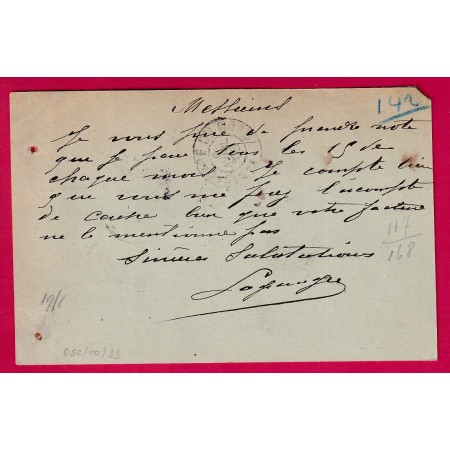 142
Messieurs
Je vous prie de prendre note
que je paie tous les 15 de
chaque mois. Je compte bien
que vous me ferez l'escompte
de caisse bien que votre facture
ne le mentionne pas
117
168
Sincères Salutations
19/1